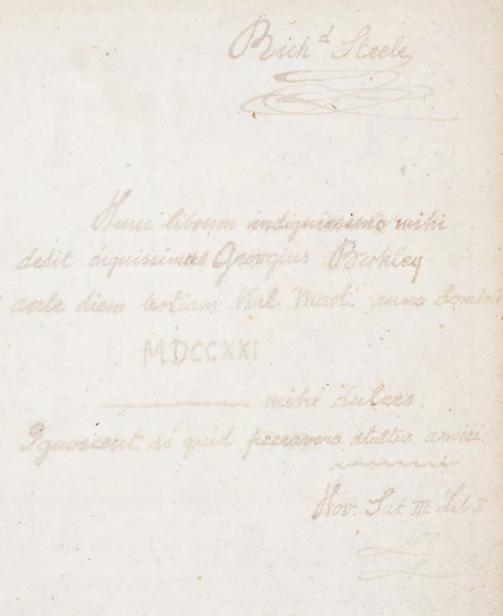 Rich^d Steele
Hunc librum indignissimo mihi
dedit dignissimus Georgius Berkley
ante diem tertiam Kal. Mart. anno domini
MDCCXXI
mihi dulces
Ignoscent si quid peccavero stultus amici
Hor. Sat III Lib I